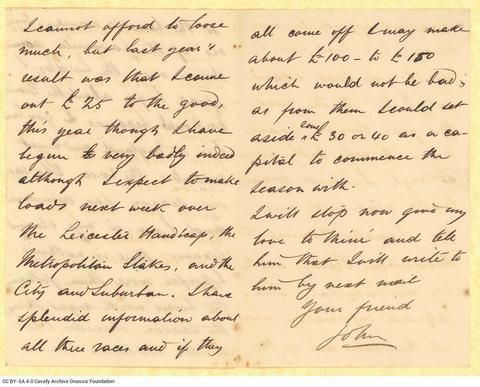 I cannot afford to loose
much, but last year's
result was that I came
out £25 to the good,
this year though I have
begun to very badly indeed
although I expect to make
loads next week over
the Leicester Handicap, the
Metropolitan Stakes, and the
City and Suburban. I have
splendid information about
all three races and if they
all come off I may make
about £100 - to £150
which would not be bad;
as from them I could set
aside some £30 or 40 as a ca-
pital to commence the
season with.
I will stop now give my
love to Mimi and tell
him that I will write to
him by next mail
Your friend
John
CC BY-SA 4.0 Cavafy Archive Onassis Foundation